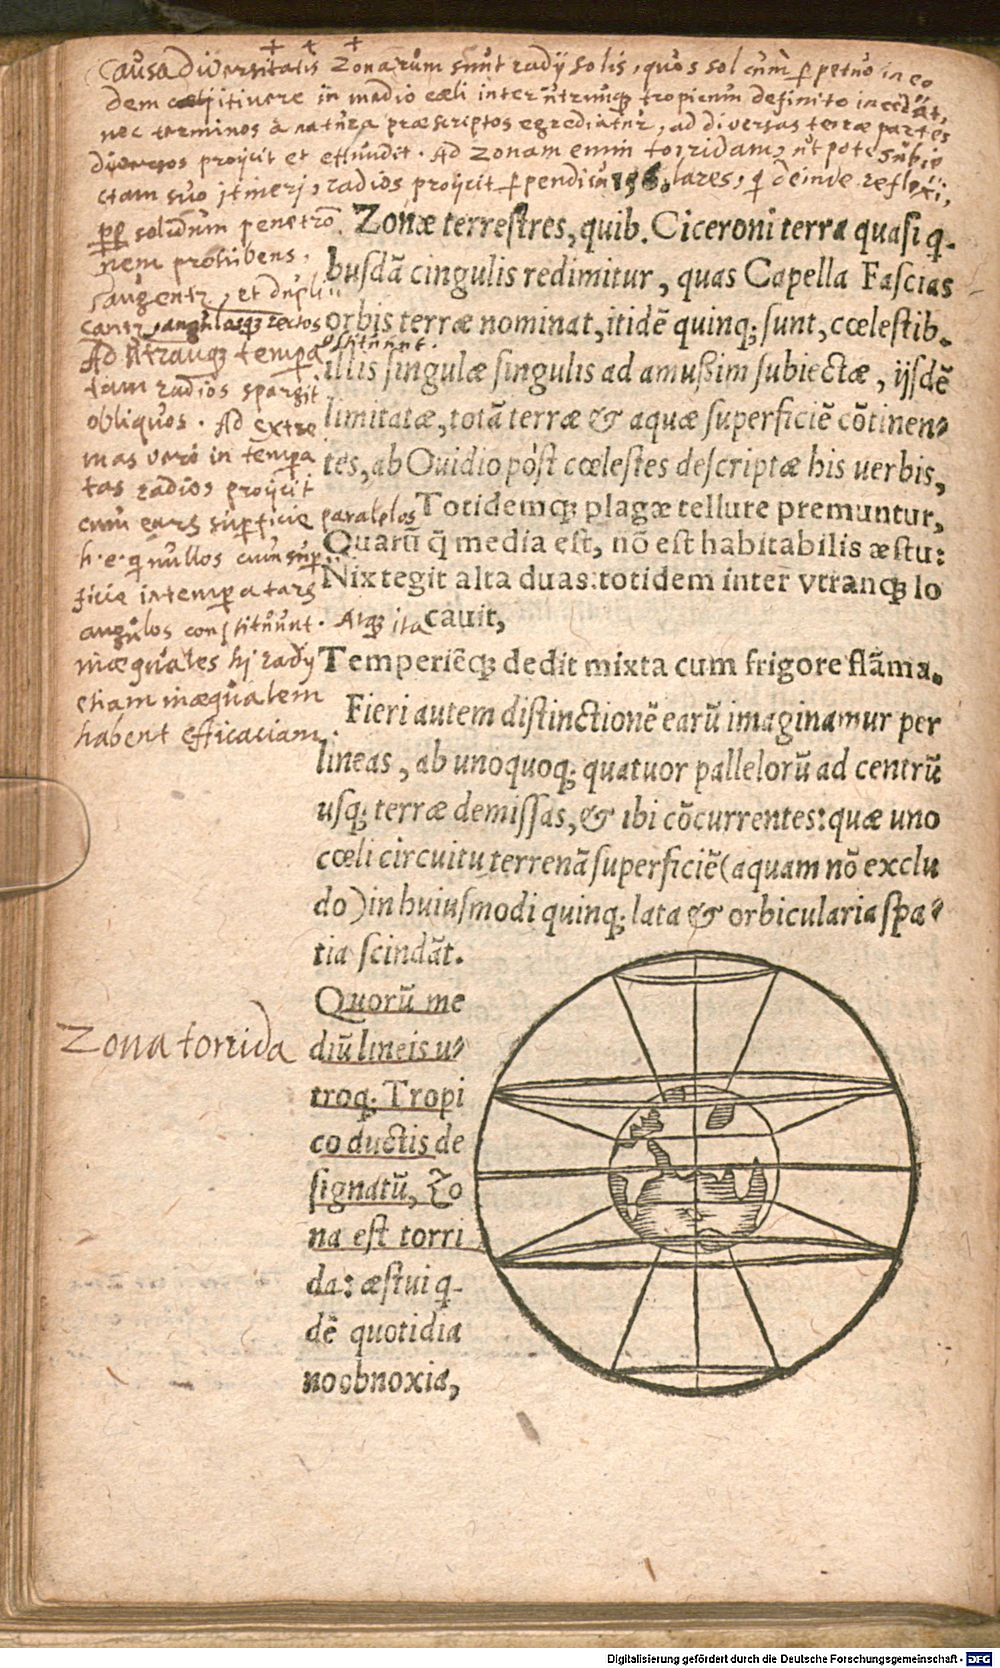 Causa diversitatis Zonarum sunt radij solis, quos sol cum ꝑpetuo in eo
dem itinere in medio cœli inter utrumq; tropicum definito incedat,
nec terminos a natura præscriptos egrediatur, ad diversas terræ partes
diversos proijcit et effundit. Ad Zonam enim torridam, ut pote subie
ctam suo itineri, radios proijcit ꝑpendiculares, q deinde reflexi,
solidum penetro
nem prohibens,
augentr, et dupli
cantr, angulosq; rectos
constituunt.
Ad utramq; tempa
tam radios spargit
obliquos. Ad extre
mas vero intempa
tas radios proijcit
cum eius superficie paralelos
h.e. q nullos cum sup
ficie intemperatars
angulos constituunt. Atq; ita
inæquales hj radij
etiam inæqualem
habent efficaciam.
196.
Zonæ terrestres, quib. Ciceroni terra quasi q̃-
busdã cingulis redimitur, quas Capella Fascias
orbis terræ nominat, itidẽ quinq; sunt, cœlestib.
illis singulæ singulis ad amußim subiectæ, ijsdẽ
limitatæ, totã terræ & aquæ superficiẽ cõtinen-
tes, ab Ouidio pòst cœlestes descriptæ his uerbis,
Totidemq; plagæ tellure premuntur,
Quarũ q̃ media est, nõ est habitabilis æstu:
Nix tegit alta duas: totidem inter vtranq; lo
cauit,
Temperiẽq; dedit mixta cum frigore flãma.
Fieri autem distinctionẽ earũ imaginamur per
lineas, ab unoquoq; quatuor pallelorũ ad centrũ
usq; terræ demissas, & ibi cõcurrentes: quæ uno
cœli circuitu terrenã superficiẽ (aquam nõ exclu
do) in huiusmodi quinq; lata & orbicularia spa-
tia scindãt.
Quorũ me
diũ lineis u-
troq; Tropi
co ductis de
signatũ, Zo
na est torri
da: æstui q̃-
dẽ quotidia
no obnoxia,
Zona torrida
Digitalisierung gefördert durch die Deutsche Forschungsgemeinschaft - DFG